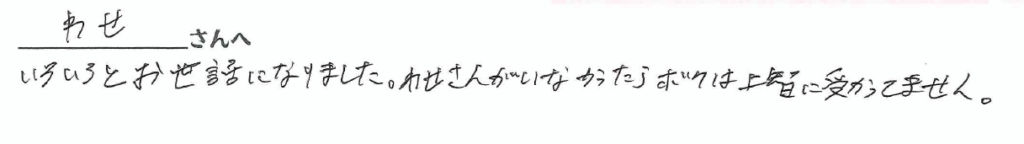 わせ さんへ
いろいろとお世話になりました。わせさんがいなかったらボクは上智に受かってません。